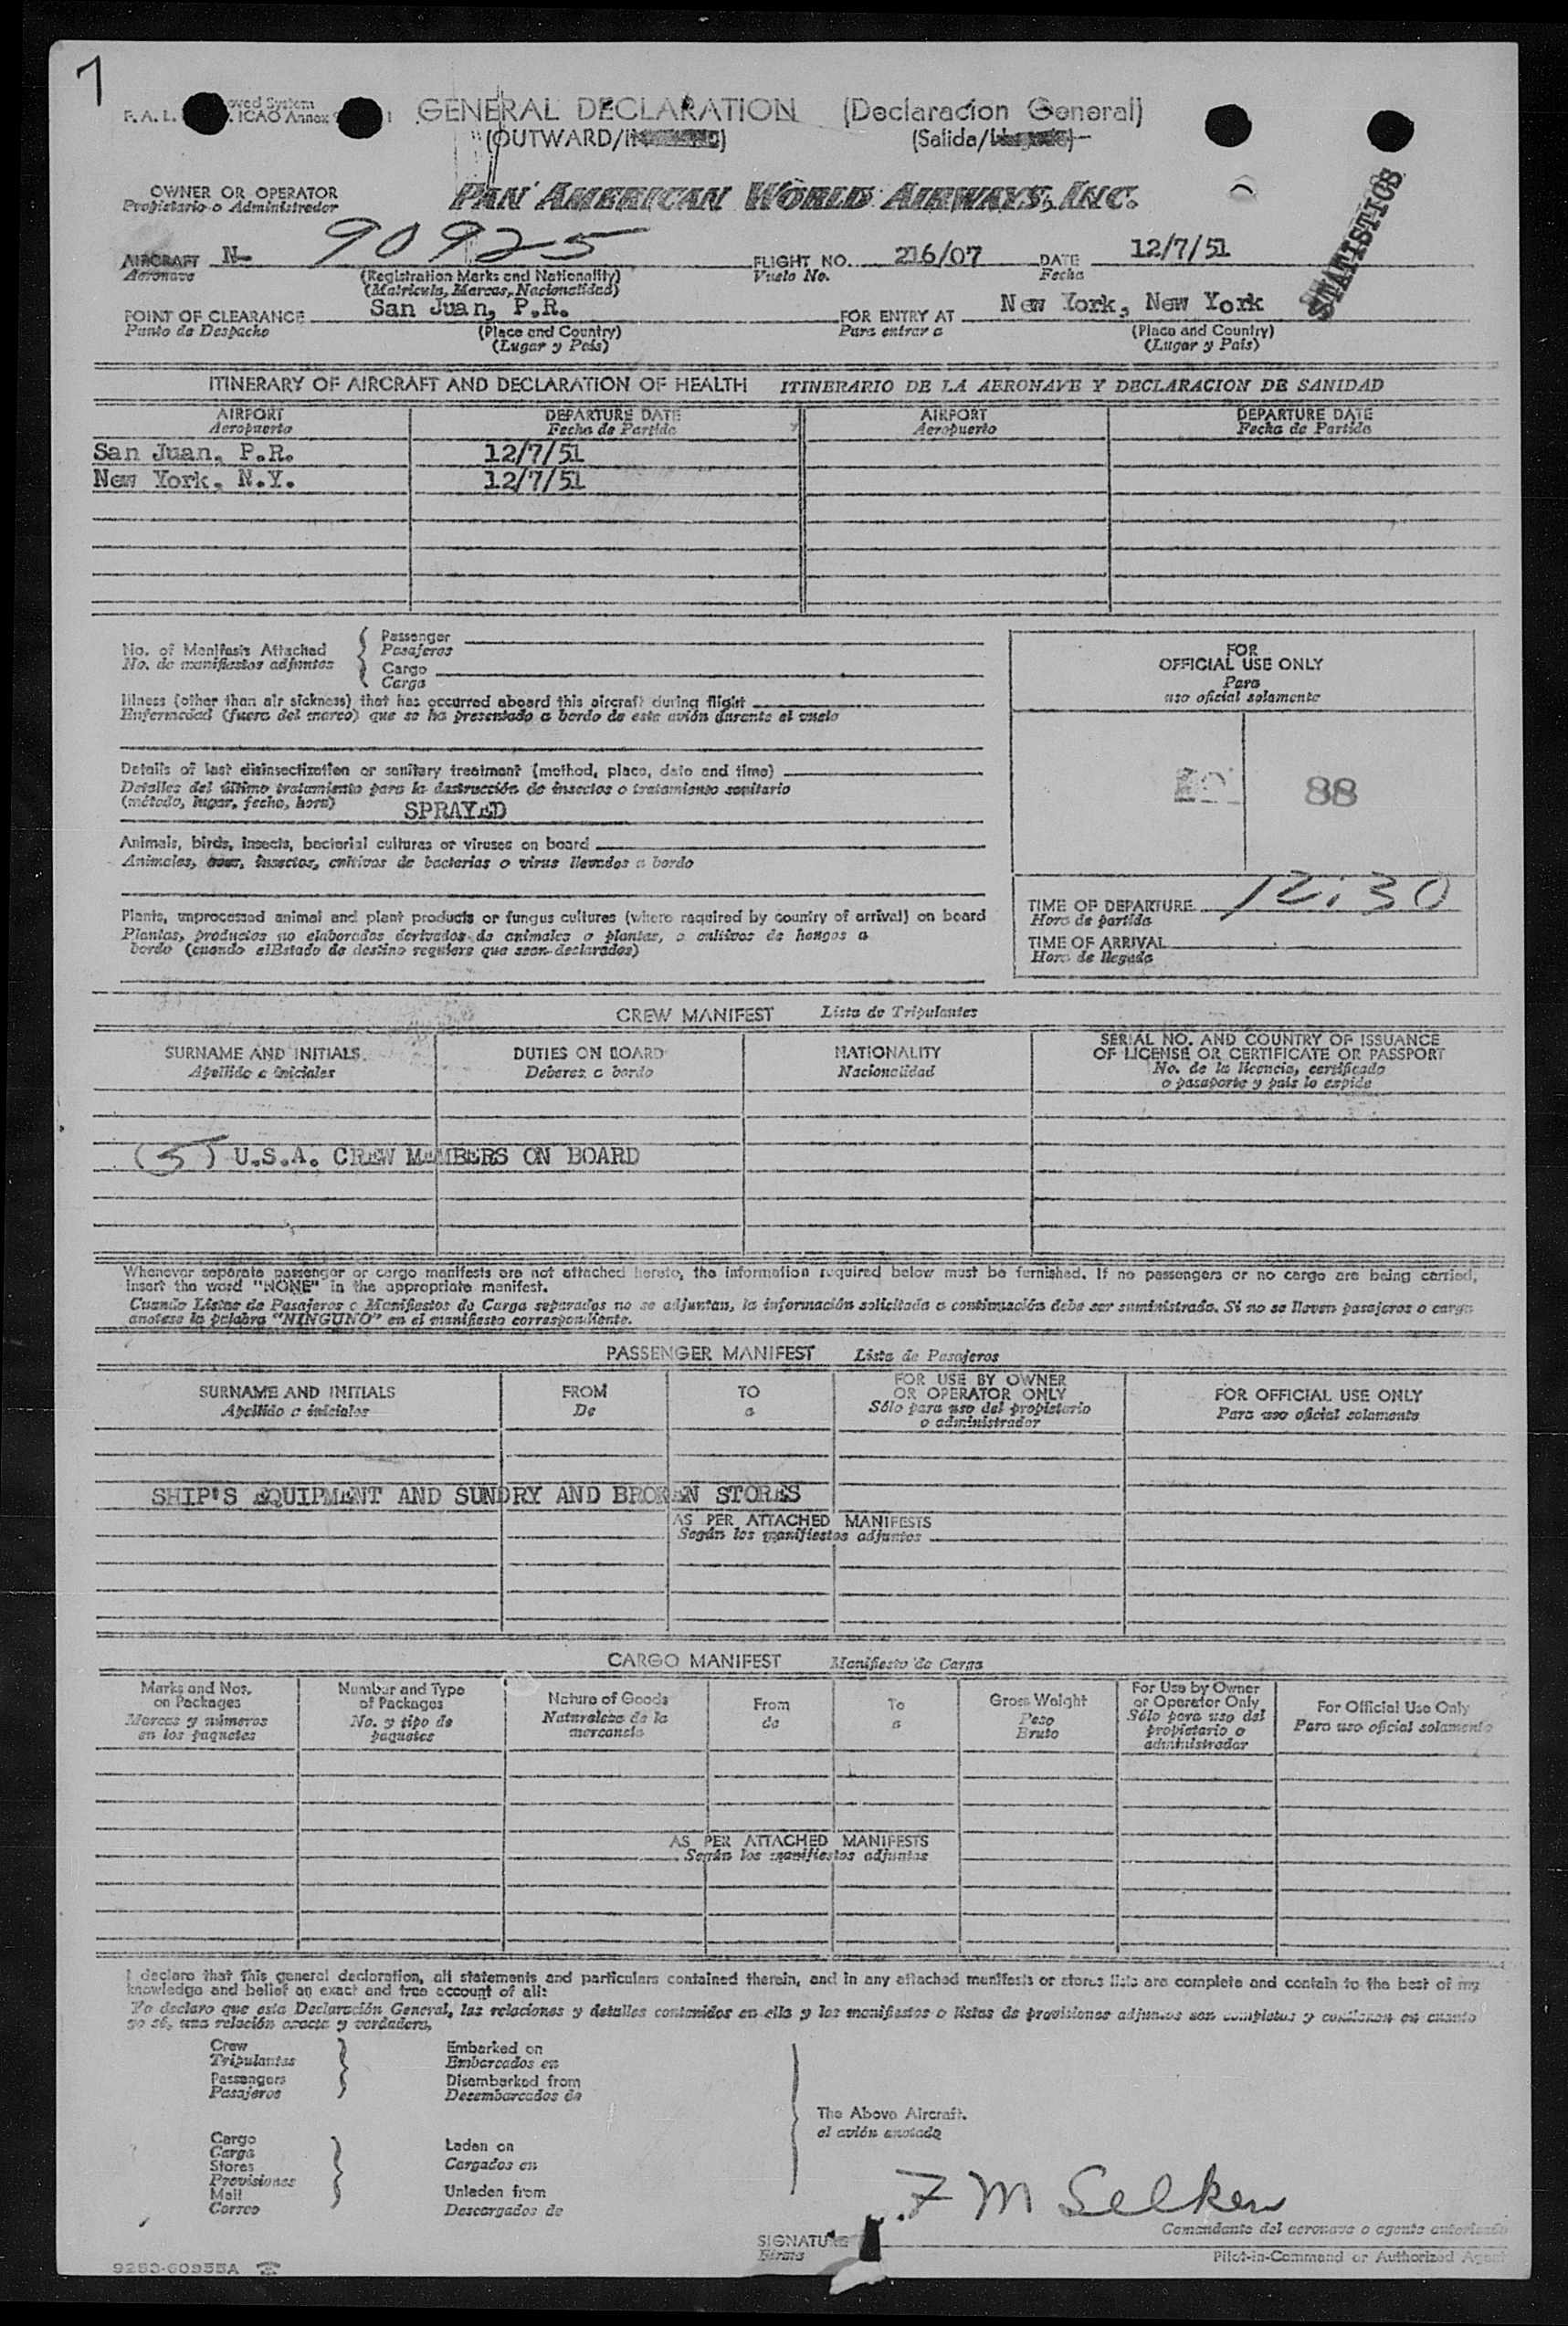 7
F. A. L. oved System
ICAO Annex
GENERAL DECLARATION (Declaracion General)
(OUTWARD/ (Salida/
OWNER OR OPERATOR
Propietario o Administrador
PAN AMERICAN WORLD AIRWAYS, INC.
STATISTICS
AIRCRAFT N- 90925 FLIGHT NO. 216/07 DATE 12/7/51
Aeronave (Registration Marks and Nationality) Vuelo No. Fecha
(Matricula, Marcas, Nacionalidad)
POINT OF CLEARANCE San Juan, P.R. FOR ENTRY AT New York, New York
Punto de Despacho (Place and Country) Para entrar a (Place and Country)
(Lugar y Pais) (Lugar y Pais)
ITINERARY OF AIRCRAFT AND DECLARATION OF HEALTH ITINERARIO DE LA AERONAVE Y DECLARACION DE SANIDAD
AIRPORT DEPARTURE DATE AIRPORT DEPARTURE DATE
Aeropuerto Fecha de Partida Aeropuerto Fecha de Partida
San Juan, P.R. 12/7/51
New York, N.Y. 12/7/51
No. of Manifests Attached Passenger
No. de manifiestos adjuntos Pasajeros
Cargo
Carga
FOR
OFFICIAL USE ONLY
Para
uso oficial solamente
Illness (other than air sickness) that has occurred aboard this aircraft during flight
Enfermedad (fuera del mareo) que se ha presentado a bordo de este avión durante el vuelo
Details of last disinsectization or sanitary treatment (method, place, date and time)
Detalles del último tratamiento para la destrucción de insectos o tratamiento sanitario
(método, lugar, fecha, hora) SPRAYED
88
Animals, birds, insects, bacterial cultures or viruses on board
Animales, aves, insectos, cultivos de bacterias o virus llevados a bordo
Plants, unprocessed animal and plant products or fungus cultures (where required by country of arrival) on board
Plantas, productos no elaborados derivados de animales o plantas, o cultivos de hongos a
bordo (cuando elEstado de destino requiere que sean declarados)
TIME OF DEPARTURE 12:30
Hora de partida
TIME OF ARRIVAL
Hora de llegada
CREW MANIFEST Lista de Tripulantes
SURNAME AND INITIALS DUTIES ON BOARD NATIONALITY SERIAL NO. AND COUNTRY OF ISSUANCE
Apellido e iniciales Deberes a bordo Nacionalidad OF LICENSE OR CERTIFICATE OR PASSPORT
No. de la licencia, certificado
o pasaporte y pais lo expide
(5) U.S.A. CREW MEMBERS ON BOARD
Whenever separate passenger or cargo manifests are not attached hereto, the information required below must be furnished. If no passengers or no cargo are being carried,
insert the word "NONE" in the appropriate manifest.
Cuando Listas de Pasajeros o Manifiestos de Carga separados no se adjuntan, la información solicitada a continuación debe ser suministrada. Si no se llevan pasajeros o carga
anotese la palabra "NINGUNO" en el manifiesto correspondiente.
PASSENGER MANIFEST Lista de Pasajeros
SURNAME AND INITIALS FROM TO FOR USE BY OWNER FOR OFFICIAL USE ONLY
Apellido e iniciales De a OR OPERATOR ONLY Para uso oficial solamente
Sólo para uso del propietario
o administrador
SHIP'S EQUIPMENT AND SUNDRY AND BROKEN STORES
AS PER ATTACHED MANIFESTS
Según los manifiestos adjuntos
CARGO MANIFEST Manifiesto de Carga
Marks and Nos. Number and Type Nature of Goods From To Gross Weight For Use by Owner For Official Use Only
on Packages of Packages Naturaleza de la de a Peso or Operator Only Para uso oficial solamente
Marcas y números No. y tipo de mercancia Bruto Sólo para uso del
en los paquetes paquetes propietario o
administrador
AS PER ATTACHED MANIFESTS
Según los manifiestos adjuntos
I declare that this general declaration, all statements and particulars contained therein, and in any attached manifests or stores lists are complete and contain to the best of my
knowledge and belief an exact and true account of all:
Yo declaro que esta Declaración General, las relaciones y detalles contenidos en ella y los manifiestos o listas de provisiones adjuntos son completos y contienen en cuanto
yo sé, una relación exacta y verdadera,
Crew Embarked on
Tripulantes Embarcados en
Passengers Disembarked from
Pasajeros Desembarcados de
The Above Aircraft.
el avión anotado
Cargo Laden on
Carga Cargados en
Stores
Provisiones
Mail Unladen from
Correo Descargados de
F M Selken
SIGNATURE Comandante del aeronave o agente autorizado
Firma Pilot-in-Command or Authorized Agent
9253-60955A